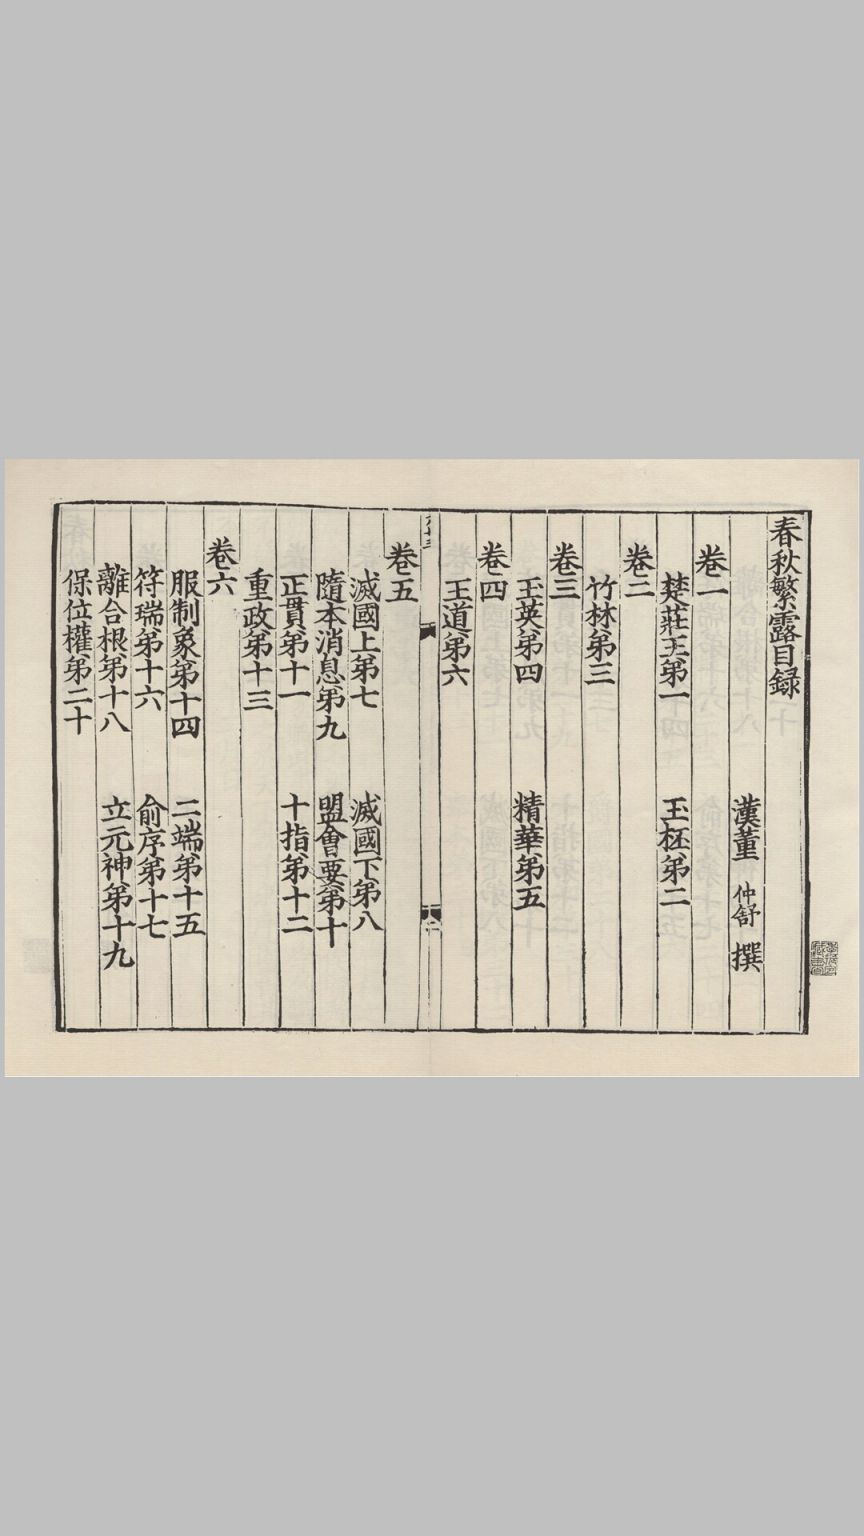 春秋繁露目録
漢董仲舒撰
卷一
楚莊王第一　王杯第二
卷二
竹林第三
卷三
玉英第四　精華第五
卷四
王道第六
卷五
滅國上第七　滅國下第八
隨本消息第九　盟會要第十
正貫第十一　十指第十二
重政第十三
卷六
服制象第十四　二端第十五
符瑞第十六　俞序第十七
離合根第十八　立元神第十九
保位權第二十